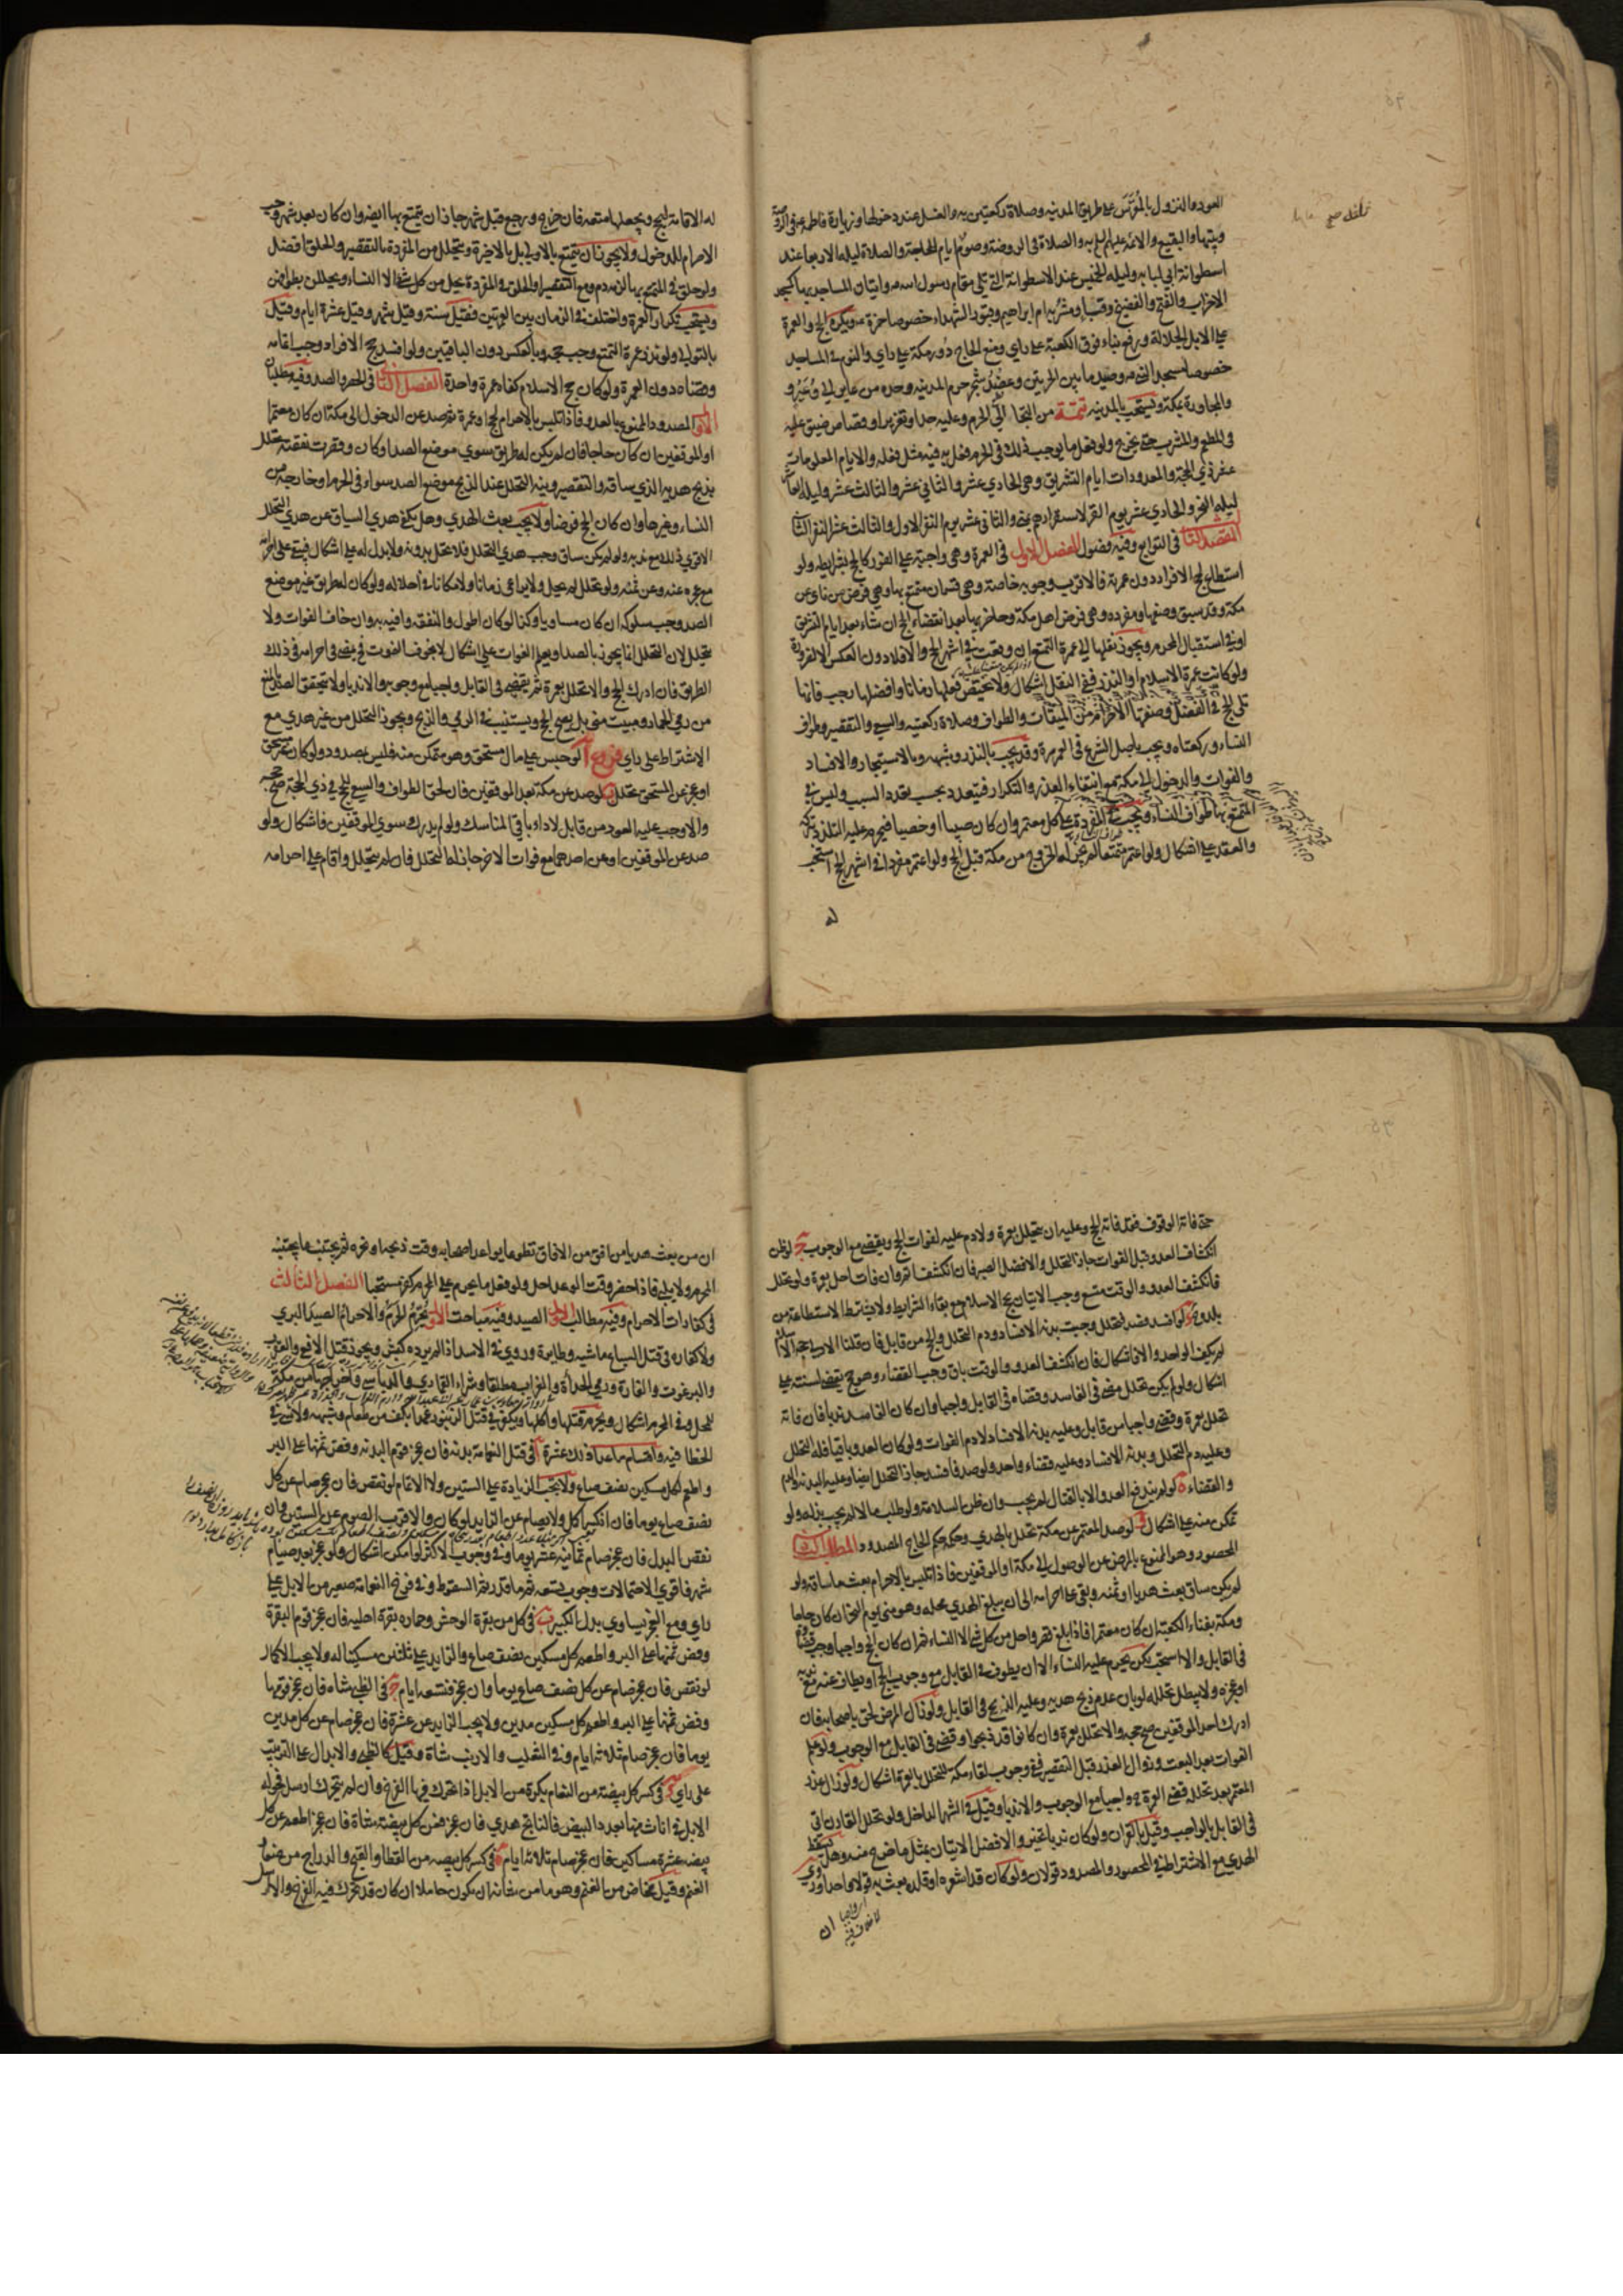 العود والنزول بالمعرس على طريق المدينة وصلاة ركعتين به والغسل عند دخولها وزيارة فاطمة ع في الروضة
وبيتها والبقيع والائمة عليهم السلم به والصلاة في الروضة وصوم ايام الحاجة والصلاة ليلة الاربعا عند
اسطوانة ابي لبابه وليلة الخميس عند الاسطوانة التي تلي مقام رسول الله ص واتيان المساجد بها كمسجد
الاحزاب والفتح والفضيخ وقبا ومشربه ام ابراهيم وقبور الشهداء خصوصا حمزة ع ويكره الحج والعمرة
على الابل الجلالة ورفع بناء فوق الكعبة على راي ومنع الحاج دور مكة على راي والنوم في المساجد
خصوصا مسجد النبي ص وصيد ما بين الحرتين وعضد شجر حرم المدينه وحده من عاير الى وعير و
والمجاورة بمكة ويستحب بالمدينه تتمة من التجا الى الحرم وعليه حد او تعزير او قصاص ضيق عليه
في المطعم والمشرب حتى يخرج ولو فعل ما يوجب ذلك في الحرم فعل به فيه مثل فعله والايام المعلومات
عشر ذي الحجة والمعدودات ايام التشريق وهي الحادي عشر والثاني عشر والثالث عشر وليلة العاشر
ليلة النحر والحادي عشر يوم القر لاستقرارهم بمنى والثاني عشر يوم النفر الاول والثالث عشر النفر الثاني
المقصد الثالث في التوابع وفيه فصول الفصل الاول في العمرة وهي واجبة على الفور كالحج بشرايطه ولو
استطاع لحج الافراد دون عمرته فالاقرب وجوبه خاصة وهي قسمان متمتع بها وهي فرض من ناى عن
مكة وقد سبق وصفها ومفرده وهي فرض اهل مكة وحاضريها بعد انقضاء الحج ان شاء بعد ايام التشريق
او في استقبال المحرم ويجوز نقلها الى عمرة التمتع ان وقعت في اشهر الحج والافلا دون العكس الا لضرورة
ولو كانت عمرة الاسلام او النذر ففي النقل اشكال ولا يختص فعلها زمانا وافضلها رجب فانها
تلي الحج في الفضل وصفتها الاحرام من الميقات والطواف وصلاة ركعتيه والسعي والتقصير وطواف
النساء وركعتاه ويجب باصل الشرع في العمر مرة وقد يجب بالنذر وشبهه وبالاستيجار والافساد
والفوات والدخول الى مكة مع انتفاء العذر والتكرار فيتعدد بحسب تعدد السبب وليس في
المتمتع بها طواف النساء ويجب في المفردة على كل معتمر وان كان صبيا او خصيا فيحرم عليه التلذذ بتركه
والعقد على اشكال ولو اعتمر متمتعا لم يجز له الخروج من مكة قبل الحج ولو اعتمر مفردا في اشهر الحج استحب
له
له الاقامة للحج ويجعلها متعة فان خرج ورجع قبل شهر جاز ان يتمتع بها ايضا وان كان بعد شهر وجب
الاحرام للدخول ولا يجوز ان يتمتع بالاولى بل بالاخيرة ويتحلل من المفردة بالتقصير والحلق افضل
ولو حلق في المتمتع بها لزمه دم ومع التقصير او الحلق في المفردة يحل من كل شئ الا النساء ويحللن بطوافهن
ويستحب تكرار العمرة واختلف في الزمان بين العمرتين فقيل سنة وقيل شهر وقيل عشرة ايام وقيل
بالتوالي ولو نذر عمرة التمتع وجب حجه وبالعكس دون الباقيين ولو افسد حج الافراد وجب اتمامه
وقضاه دون العمرة ولو كان حج الاسلام كفاه عمرة واحدة الفصل الثاني في الحصر والصد وفيه مطلبان
الاول المصدود الممنوع بالعدو فاذا تلبس بالاحرام لحج او عمرة ثم صد عن الدخول الى مكة ان كان معتمرا
او الموقفين ان كان حاجا فان لم يكن له طريق سوى موضع الصد او كان وقصرت نفقته تحلل
بذبح هديه الذي ساقه والتقصير ونية التحلل عند الذبح موضع الصد سواء في الحرم او خارجه من
النساء وغيرها وان كان الحج فرضا ولا يجب بعث الهدي وهل يكفي هدي السياق عن هدي التحلل
الاقوى ذلك مع ندبه ولو لم يكن ساق وجب هدي التحلل فلا يتحلل بدونه ولا بدل له على اشكال فيبقى على احرامه
مع عجزه عنه وعن ثمنه ولو تحلل لم يحل ولا يراعى زمانا ولا مكانا في احلاله ولو كان له طريق غير موضع
الصد وجب سلوكه ان كان مساويا وكذا لو كان اطول والنفقة وافيه به وان خاف الفوات ولا
يتحلل لان التحلل انما يجوز بالصد او بعلم الفوات على اشكال لا بخوف الفوت فيمضي في احرامه في ذلك
الطريق فان ادرك الحج والا تحلل بعمرة ثم يقضيه في القابل واجبا مع وجوبه والا ندبا ولا يتحقق الصد بالمنع
من رمي الجمار ومبيت منى بل يصح الحج ويستنيب في الرمي والذبح ويجوز التحلل من غير هدي مع
الاشتراط على راي فروع آ لو حبس على مال مستحق وهو متمكن منه فليس بمصدود ولو كان غير مستحق
او عجز عن المستحق تحلل ب لو صد عن مكة بعد الموقفين فان لحق الطواف والسعي للحج في ذي الحجة صح حجه
والا وجب عليه العود من قابل لاداء باقي المناسك ولو لم يدرك سوى الموقفين فاشكال ولو
صد عن الموقفين او عن احدهما مع فوات الاخر جاز له التحلل فان لم يتحلل واقام على احرامه
حتى فاته الوقوف فقد فاته الحج وعليه ان يتحلل بعمرة ولا دم عليه لفوات الحج ويقضي مع الوجوب ج لو ظن
انكشاف العدو قبل الفوات جاز التحلل والافضل الصبر فان انكشف اتم وان فات احل بعمرة ولو تحلل
فانكشف العدو والوقت متسع وجب الاتيان بحج الاسلام مع بقاء الشرايط ولا يشترط الاستطاعة من
بلده د لو افسد فصد فتحلل وجبت بدنة الافساد ودم التحلل والحج من قابل فان قلنا الاولى حجة الاسلام
لم يكف الواحد والا فاشكال فان انكشف العدو والوقت باق وجب القضاء وهو حج يقضى لسنته على
اشكال ولو لم يكن تحلل مضى في الفاسد وقضاه في القابل واجبا وان كان الفاسد ندبا فان فاته
تحلل بعمرة وقضى واجبا من قابل وعليه بدنة الافساد لا دم الفوات ولو كان العدو باقيا فله التحلل
وعليه دم التحلل وبدنة الافساد وعليه قضاء واحد ولو صد فافسد جاز التحلل ايضا وعليه البدنة والدم
والقضاء ه لو لم يندفع العدو الا بالقتال لم يجب وان ظن السلامة ولو طلب مالا لم يجب بذله ولو
تمكن منه على اشكال و لو صد المعتمر عن مكة تحلل بالهدي وحكمه حكم الحاج المصدود المطلب الثاني
المحصور وهو الممنوع بالمرض عن الوصول الى مكة او الموقفين فاذا تلبس بالاحرام بعث ما ساقه ولو
لم يكن ساق بعث هديا او ثمنه وبقي على احرامه الى ان يبلغ الهدي محله وهو منى يوم النحر ان كان حاجا
ومكة بفناء الكعبة ان كان معتمرا فاذا بلغ قصر واحل من كل شئ الا النساء ثم ان كان الحج واجبا وجب قضاؤه
في القابل والا استحب لكن يحرم عليه النساء الا ان يطوف في القابل مع وجوب الحج او يطاف عنه مع ندبه
او عجزه ولا يبطل تحلله لو بان عدم ذبح هديه وعليه الذبح في القابل ولو زال المرض لحق باصحابه فان
ادرك احد الموقفين صح حجه والا تحلل بعمرة وان كانوا قد ذبحوا وقضى في القابل مع الوجوب ولو علم
الفوات بعد البعث وزوال العذر قبل التقصير ففي وجوب لقاء مكة للتحلل بالعمرة اشكال ولو زال عذر
المعتمر بعد تحلله قضى العمرة ح واجبا مع الوجوب والا ندبا وقيل في الشهر الداخل ولو تحلل القارن اتى
في القابل بالواجب وقيل بالقران ولو كان ندبا تخير والافضل الاتيان بمثل ما خرج منه وهل يسقط
الهدي مع الاشتراط في المحصور والمصدود قولان ولو كان قد اشعره او قلده بعث به قولا واحدا وروي
ان
ان من بعث هديا من افق من الافاق تطوعا يواعد اصحابه وقت ذبحه او نحره ثم يجتنب ما يجتنبه
المحرم ولا يلبي فاذا حضر وقت الوعد احل ولو فعل ما يحرم على المحرم كفر مستحبا الفصل الثالث
في كفارات الاحرام وفيه مطالب الاول الصيد وفيه مباحث الاول يحرم الحرم والاحرام الصيد البري
ولا كفارة في قتل السباع ماشية وطايرة وروي في الاسد اذا لم يرده كبش ويجوز قتل الافعى والعقرب
والبرغوث والفارة ورمي الحدأة والغراب مطلقا وشراء القماري والدباسي واخراجها من مكة
للمحل وفي المحرم اشكال ويحرم قتلها واكلها ويكفر في قتل الزنبور عمدا بكف من طعام وشبهه ولا شئ في
الخطا فيه واقسام ما عدا ذلك عشرة آ في قتل النعامة بدنه فان عجز قوم البدنه وفض ثمنها على البر
واطعم لكل مسكين نصف صاع ولا يجب الزيادة على الستين ولا الاتمام لو نقص فان عجز صام عن كل
نصف صاع يوما فان انكسر اكمل ولا يصام عن الزايد لو كان والاقرب الصوم عن الستين وان
نقص البدل فان عجز صام ثمانية عشر يوما وفي وجوب الاكثر لو امكن اشكال ولو عجز بعد صيام
شهر فاقوى الاحتمالات وجوب تسعة ثم ما قدر ثم السقوط وفي فرخ النعامة صغير من الابل على
راي ومع العجز يساوي بدل الكبير ب في كل من بقرة الوحش وحماره بقرة اهلية فان عجز قوم البقرة
وفض ثمنها على البر واطعم كل مسكين نصف صاع والزايد على ثلثين مسكينا له ولا يجب الاكمال
لو نقص فان عجز صام عن كل نصف صاع يوما وان عجز فتسعة ايام ج في الظبي شاه فان عجز قومها
وفض ثمنها على البر واطعم كل مسكين مدين ولا يجب الزايد عن عشرة فان عجز صام عن كل مدين
يوما فان عجز صام ثلثة ايام وفي الثعلب والارنب شاة وقيل كالظبي والابدال على الترتيب
على راي د في كسر كل بيضة من النعام بكرة من الابل اذا تحرك فيها الفرخ وان لم يتحرك ارسل فحولة
الابل في اناث منها بعدد البيض فالناتج هدي فان عجز فعن كل بيضة شاة فان عجز اطعم عن كل
بيضة عشرة مساكين فان عجز صام ثلاثة ايام ه في كسر كل بيضة من القطا والقبج والدراج من صغار
الغنم وقيل مخاض من الغنم وهو ما من شأنه ان يكون حاملا ان كان قد تحرك فيه الفرخ والا ارسل